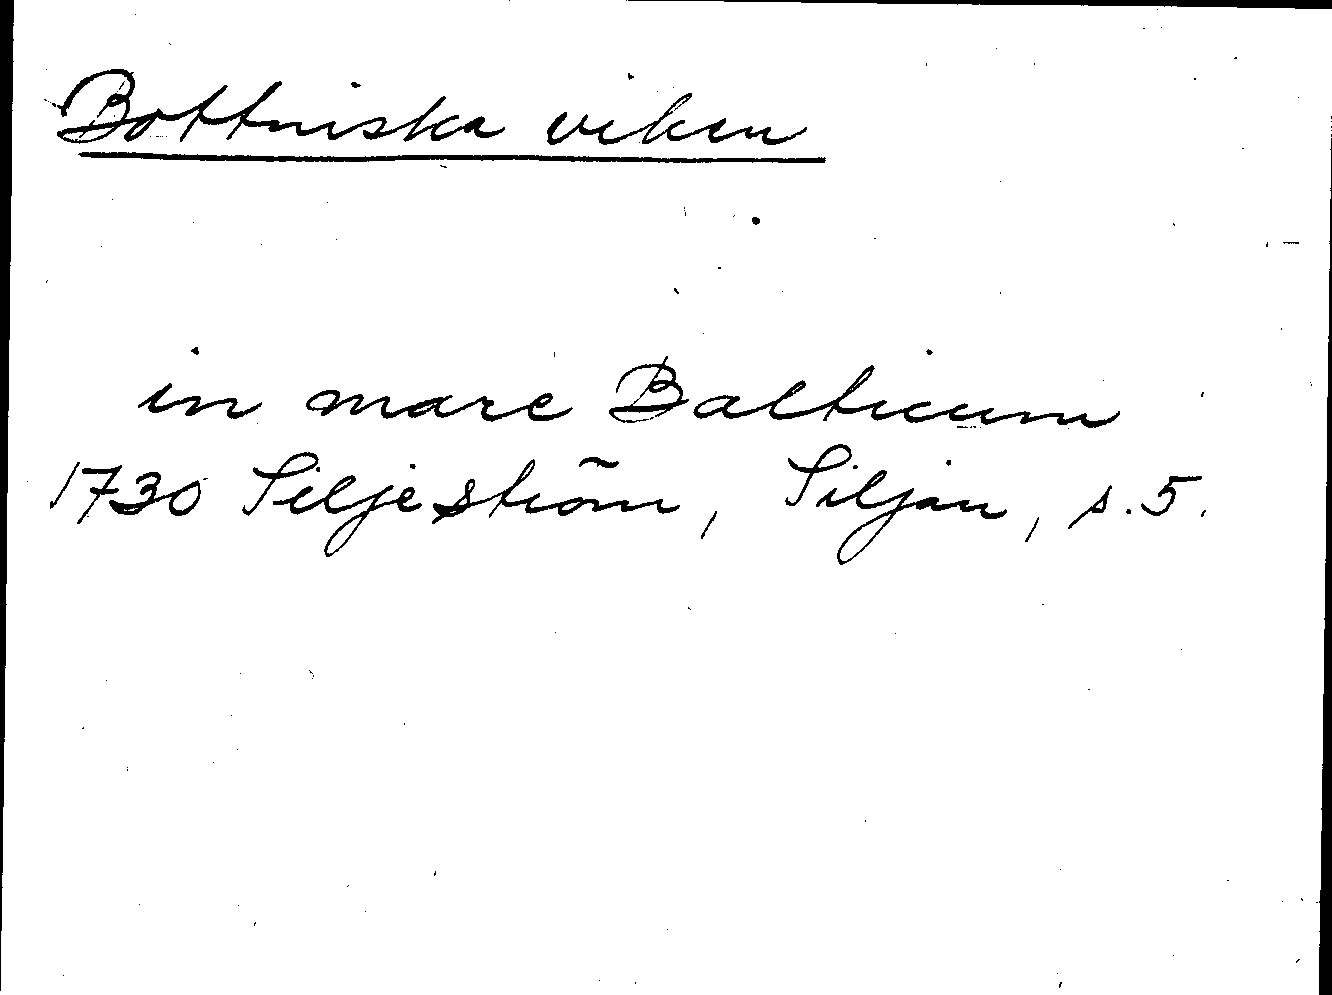 Bottniska viken
in mare Balticum
1730 Siljeström, Siljan, s. 5.